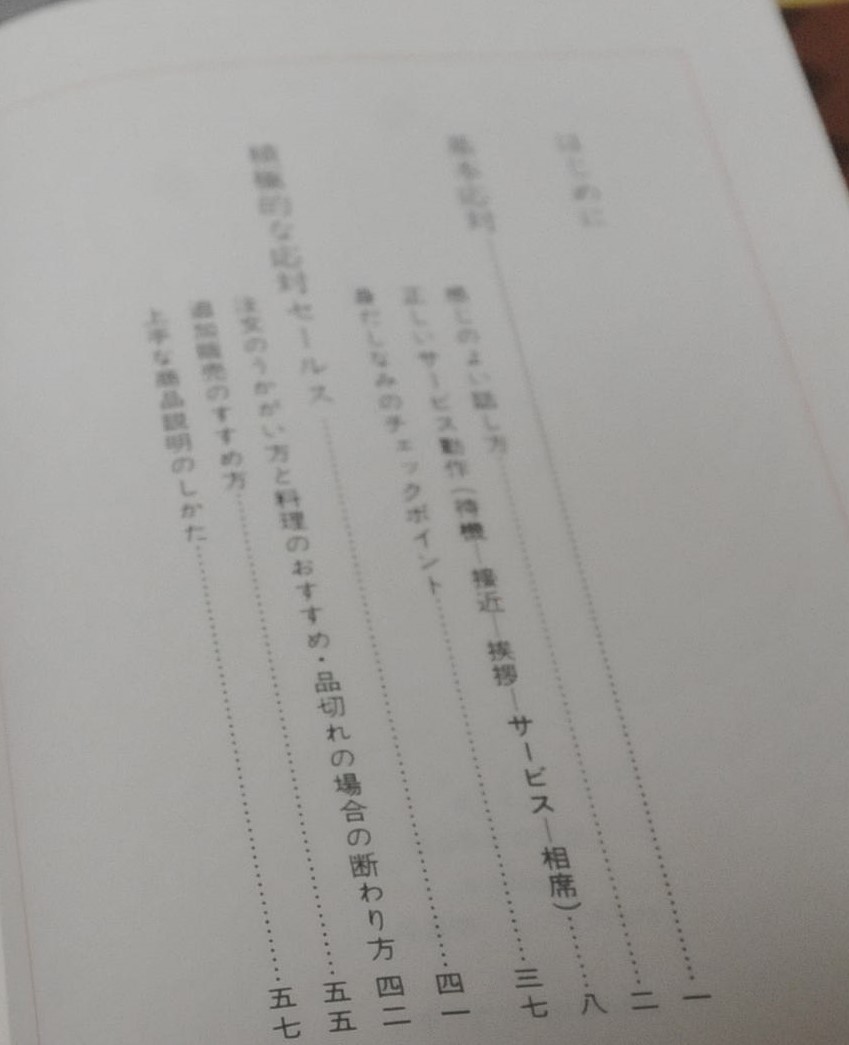 はじめに
基本応対……………一
感じのよい話し方……………二
正しいサービス動作(待機―接近―挨拶―サービス―相席)……八
身だしなみのチェックポイント……………三七
積極的な応対セールス……………四一
注文のうかがい方と料理のおすすめ・品切れの場合の断わり方 四二
追加販売のすすめ方……………五五
上手な商品説明のしかた……………五七